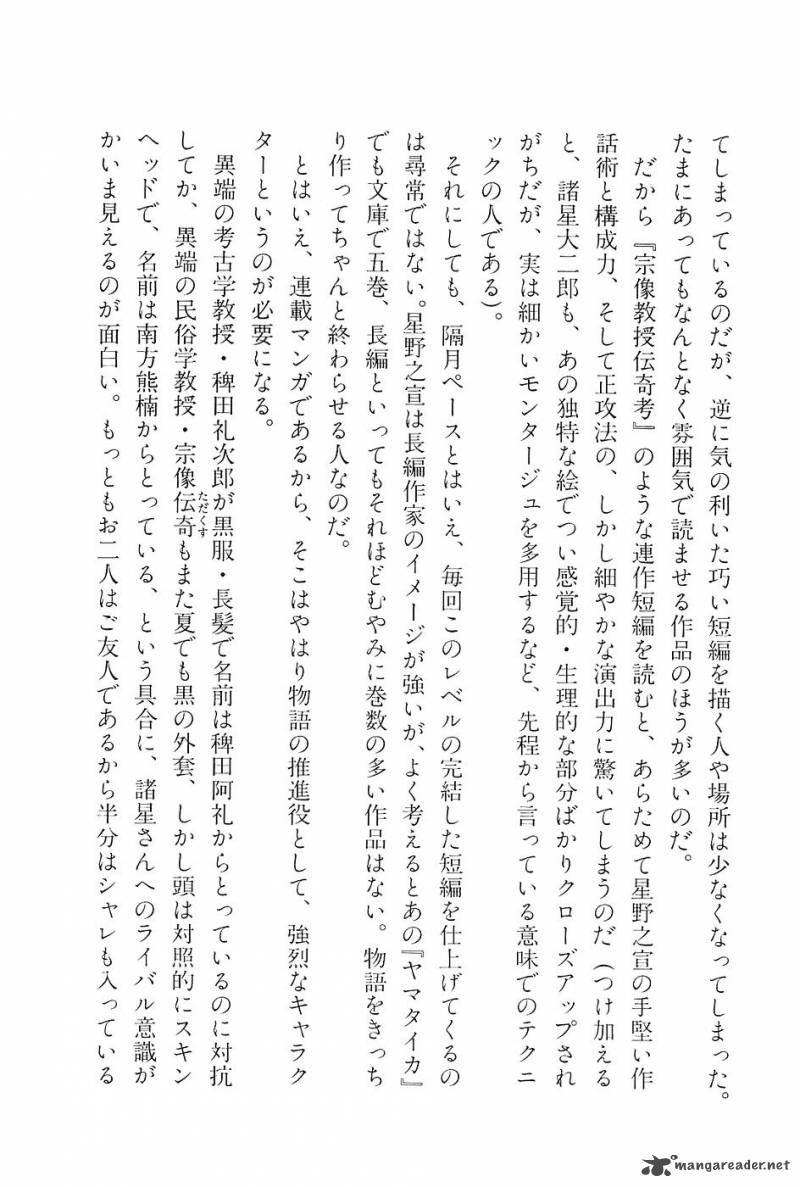 てしまっているのだが、逆に気の利いた巧い短編を描く人や場所は少なくなってしまった。
たまにあってもなんとなく雰囲気で読ませる作品のほうが多いのだ。
だから『宗像教授伝奇考』のような連作短編を読むと、あらためて星野之宣の手堅い作
話術と構成力、そして正攻法の、しかし細やかな演出力に驚いてしまうのだ（つけ加える
と、諸星大二郎も、あの独特な絵でつい感覚的・生理的な部分ばかりクローズアップされ
がちだが、実は細かいモンタージュを多用するなど、先程から言っている意味でのテクニ
ックの人である）。
それにしても、隔月ペースとはいえ、毎回このレベルの完結した短編を仕上げてくるの
は尋常ではない。星野之宣は長編作家のイメージが強いが、よく考えるとあの『ヤマタイカ』
でも文庫で五巻、長編といってもそれほどむやみに巻数の多い作品はない。物語をきっち
り作ってちゃんと終わらせる人なのだ。
とはいえ、連載マンガであるから、そこはやはり物語の推進役として、強烈なキャラク
ターというのが必要になる。
異端の考古学教授・稗田礼次郎が黒服・長髪で名前は稗田阿礼からとっているのに対抗
してか、異端の民俗学教授・宗像伝奇ただくすもまた夏でも黒の外套、しかし頭は対照的にスキン
ヘッドで、名前は南方熊楠からとっている、という具合に、諸星さんへのライバル意識が
かいま見えるのが面白い。もっともお二人はご友人であるから半分はシャレも入っている
mangareader.net